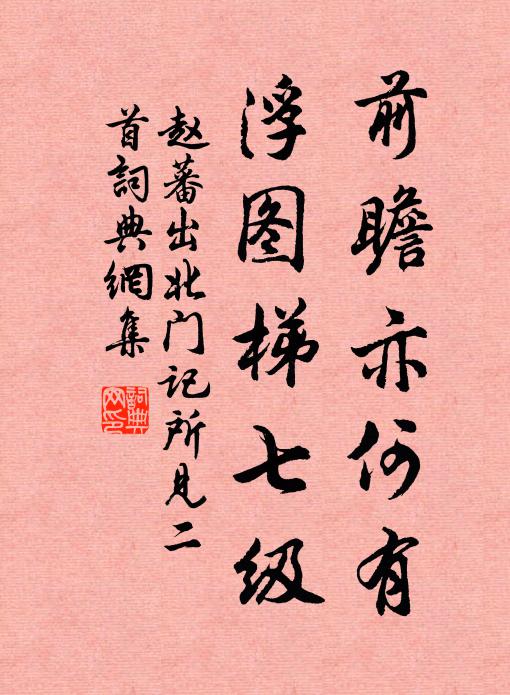 前瞻亦何有
浮图梯七级
赵蕃出北门记所见二
首詞典網集
詞典
网印